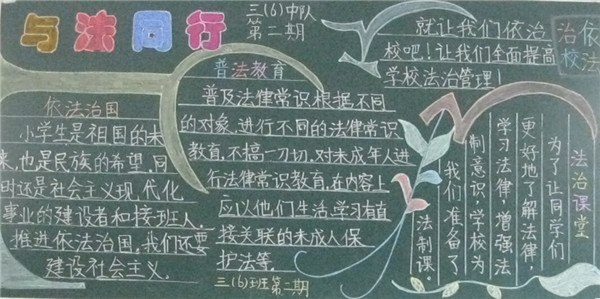 与法同行
三(6)中队
第二期
依法治国
小学生是祖国的未
来,也是民族的希望,同
时还是社会主义现代化
事业的建设者和接班人.
推进依法治国,我们还要
建设社会主义.
普法教育
普及法律常识根据不同
的对象,进行不同的法律常识
教育,不搞一刀切,对未成年人进
行法律常识教育,在内容上
应以他们生活,学习有直
接关联的未成人保
护法等.
三(6)班第二期
就让我们依治
校吧!让我们全面提高
学校法治管理!
依法
治校
法治课堂
为了让同学们
更好地了解法律,
学习法律,增强法
制意识,学校为
我们准备了
法制课。